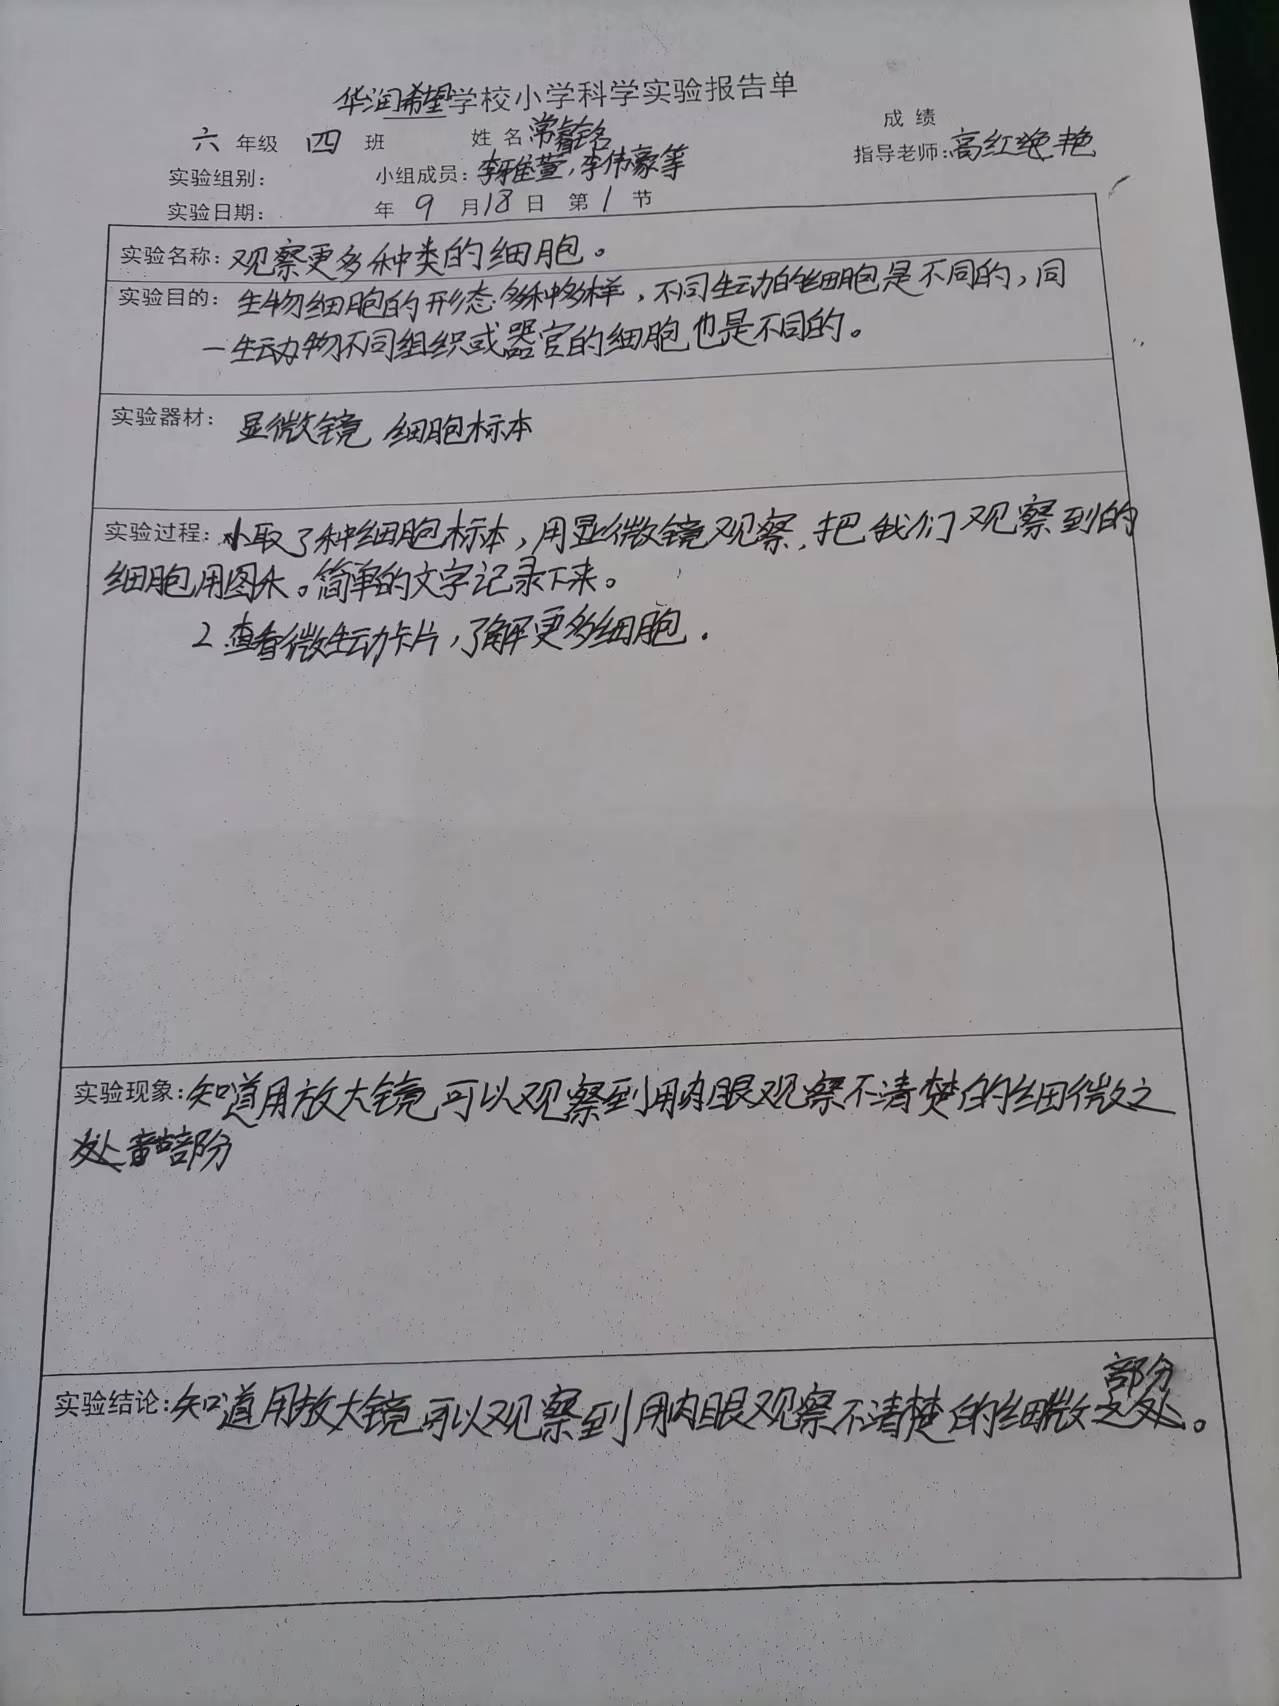 华润希望学校小学科学实验报告单
六 年级 四 班 姓 名 常睿铭 成 绩
实验组别: 小组成员: 李雅萱,李伟豪等 指导老师: 高红艳 艳
实验日期: 年 9 月 18 日 第 1 节
实验名称: 观察更多种类的细胞。
实验目的: 生物细胞的形态多种多样,不同生动的细胞是不同的,同
一生动物不同组织或器官的细胞也是不同的。
实验器材: 显微镜 细胞标本
实验过程: 取了种细胞标本,用显微镜观察,把我们观察到的
细胞用图示。简单的文字记录下来。
2.查看微生动卡片,了解更多细胞.
实验现象: 知道用放大镜可以观察到用肉眼观察不清楚的细微之
处 部份
部分
实验结论: 知道用放大镜可以观察到用肉眼观察不清楚的细微之处。